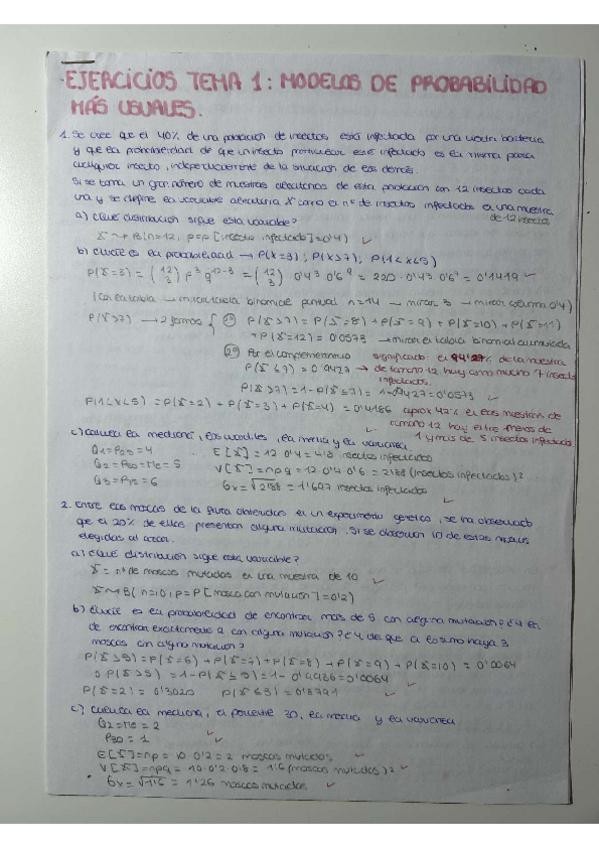 EJERCICIOS TEMA 1: MODELOS DE PROBABILIDAD
MÁS USUALES.
1. Se cree que el 40% de una población de insectos está infectada por una bacteria
y que la probabilidad de que un insecto particular esté infectado es la misma para
cualquier insecto, independientemente de la situación de los demás.
Si se toma un gran número de muestras aleatorias de esta población con 12 insectos cada
una y se define la variable aleatoria X como el nº de insectos infectados en una muestra
de 12 insectos.
a) ¿Qué distribución sigue esta variable?
X ~ B(n=12, p=P[insecto infectado]=0'4)
b) ¿Cuál es la probabilidad → P(X=3); P(X>7); P(1<X<5)
P(X=3) = (12 3) p^3 q^12-3 = (12 3) 0'4^3 0'6^9 = 220 · 0'4^3 0'6^9 = 0'1419
(con la tabla → mirar tabla binomial puntual n=14 → mirar 3 → mirar columna 0'4)
P(X>7) → 2 formas { 1º P(X>7) = P(X=8) + P(X=9) + P(X=10) + P(X=11)
+ P(X=12) = 0'0573 → mirar el tabla binomial acumulada
2º Por el complementario significado: el 94'27% de la muestra
P(X≤7) = 0'9427 → de tamaño 12 hay como mucho 7 insectos
infectados.
P(X>7) = 1-P(X≤7) = 1-0'9427 = 0'0573
P(1<X<5) = P(X=2) + P(X=3) + P(X=4) = 0'4186 aprox 42% de las muestras de
tamaño 12 hay entre
1 y más de 5 insectos infectados
c) Calcula la mediana, los cuartiles, la media y la varianza
Q1 = P25 = 4 E[X] = 12 · 0'4 = 4'8 insectos infectados
Q2 = P50 = Me = 5 V[X] = npq = 12 · 0'4 · 0'6 = 2'88 (insectos infectados)²
Q3 = P75 = 6 σx = √2'88 = 1'697 insectos infectados
2. Entre las moscas de la fruta obtenidas en un experimento genético, se ha observado
que el 20% de ellas presentan alguna mutación. Si se observan 10 de estas moscas
elegidas al azar.
a) ¿Qué distribución sigue esta variable?
X = nº de moscas mutadas en una muestra de 10
X ~ B(n=10, p=P[mosca con mutación]=0'2)
b) ¿Cuál es la probabilidad de encontrar más de 5 con alguna mutación? ¿Y la
de encontrar exactamente 2 con alguna mutación? ¿Y de que a lo sumo haya 3
moscas con alguna mutación?
P(X>5) = P(X=6) + P(X=7) + P(X=8) + P(X=9) + P(X=10) = 0'0064
o P(X>5) = 1-P(X≤5) = 1-0'9936 = 0'0064
P(X=2) = 0'3020 P(X≤3) = 0'8791
c) Calcula la mediana, el percentil 30, la media y la varianza
Q2 = Me = 2
P30 = 1
E[X] = np = 10 · 0'2 = 2 moscas mutadas
V[X] = npq = 10 · 0'2 · 0'8 = 1'6 (moscas mutadas)²
σx = √1'6 = 1'26 moscas mutadas